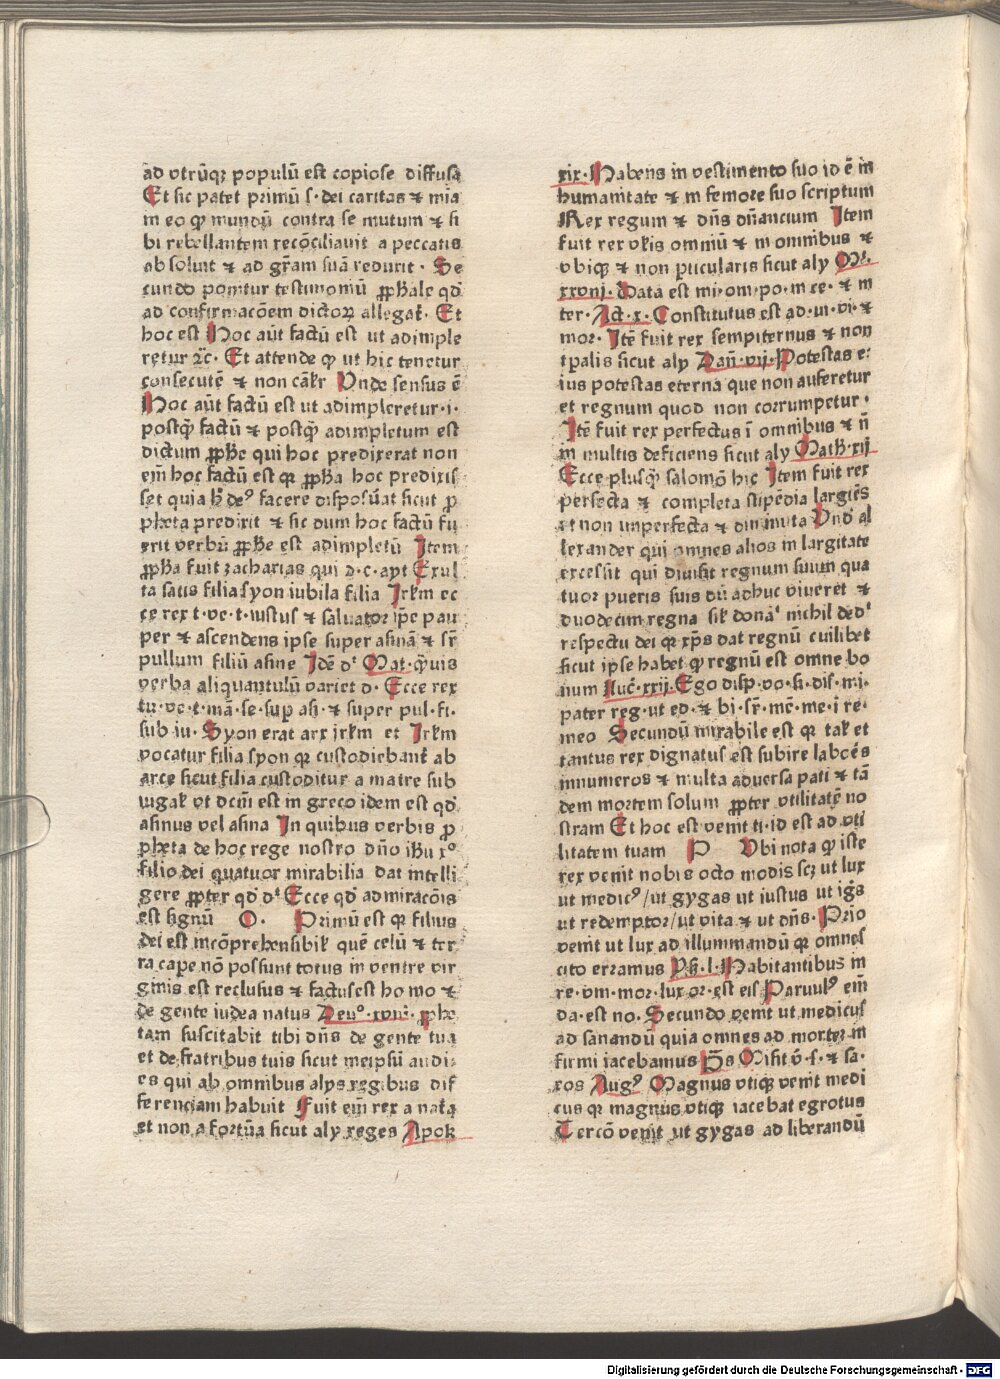 ad vtrūqꝫ populū est copiose diffusa
Et sic patet primū s· dei caritas ⁊ mīa
in eo ꝙ mundū contra se mutum ⁊ si
bi rebellantem recōciliauit a peccatis
absoluit ⁊ ad grām suā reduxit · Se
cundo ponitur testimoniū ꝓphale qd̄
ad confirmacōem dictoꝝ allegat̄· Et
hoc est Hoc aūt factū est ut adimple
retur ⁊c̄· Et attende ꝙ ut hic tenetur
consecutē ⁊ non cāƚr Vnde sensus ē
Hoc aūt factū est ut adimpleretur·i·
postq̄ factū ⁊ postq̄ adimpletum est
dictum ꝓphe qui hoc predixerat non
em̄ hoc factū est qꝛ ꝓpha hoc predixis
set quia h̄ deꝰ facere disposūat sicut ꝓ
pheta predixit ⁊ sic dum hoc factū fu
erit verbū ꝓphe est adimpletū Item
ꝓpha fuit zacharias qui ·ꝯ·c·apt Exul
ta satis filia syon iubila filia Irƚm ec
ce rex t·ve·t·iustus ⁊ saluator ip̄e pau
per ⁊ ascendens ipse super asinā ⁊ sr̄
pullum filiū asine Idē dt Mat· q̄uis
verba aliquantulū variet d· Ecce rex
tu·ve·t·mā·se·sup asi·⁊ super pul·fi·
subiu· Syon erat arx irƚm et Irƚm
vocatur filia syon qꝛ custodiebant̄ ab
arce sicut filia custoditur a matre sub
iugaƚ vt dcm̄ est in greco idem est qd̄
asinus vel asina In quibus verbis ꝓ
pheta de hoc rege nostro dn̄o ihū xº
filio dei quatuor mirabilia dat intelli
gere ꝓpter qd̄ dt Ecce qd̄ admiracōis
est signū O· Primū est qꝛ filius
dei est incōprehensibiƚ quē celū ⁊ ter
ra cape nō possunt totus in ventre vir
ginis est reclusus ⁊ factus est homo ⁊
de gente iudea natus Deuº·xviij· ꝓphe
tam suscitabit tibi dn̄s de gente tua
et de fratribus tuis sicut meipsū audi·
es qui ab omnibus alys regibus dif
ferenciam habuit Fuit em̄ rex a nata
et non a fortūa sicut aly reges Apoƚ
xix· Habens in vestimento suo id ē in
humanitate ⁊ in femore suo scriptum
Rex regum ⁊ dn̄s dn̄ancium Item
fuit rex vƚis omniū ⁊ in omnibus ⁊
vbiqꝫ ⁊ non ꝑticularis sicut aly Mt·
xxviij· Data est mi·om·po·in ce· ⁊ in
ter· Act·x· Constitutus est ad·iu·vi·⁊
mor· Itē fuit rex sempiternus ⁊ non
tꝑalis sicut aly Dan̄·vij· Potestas e·
ius potestas eterna que non auferetur
et regnum quod non corrumpetur·
Itē fuit rex perfectus ī omnibus ⁊ n̄
in multis deficiens sicut aly Math·xij
Ecce plusq̄ salomō hic Item fuit rex
perfecta ⁊ completa stipēdia largiēs
et non imperfecta ⁊ diminuta Vnd̄ al
lexander qui omnes alios in largitate
excessit qui diuisit regnum suum qua
tuor pueris suis dū adhuc viueret ⁊
duodecim regna siƚ donat nichil dedt
respectu dei qꝛ xp̄s dat regnū cuilibet
sicut ipse habet ꝙ regnū est omne bo
num Luc̄·xxij· Ego disp·vo·si·dis·mi·
pater reg·ut ed·⁊ bi·sr̄·mē·me·i re·
meo Secundū mirabile est qꝛ tal et
tantus rex dignatus est subire labōes
innumeros ⁊ multa aduersa pati ⁊ tā
dem mortem solum ꝓpter vtilitatē no
stram Et hoc est venit ti·id est ad vti
litatem tuam P Vbi nota ꝙ iste
rex venit nobis octo modis scꝫ ut lux
ut medicꝰ/ut gygas ut iustus ut ig̓s
ut redemptor/ut vita ⁊ ut dn̄s· Prīo
venit ut lux ad illuminandū qꝛ omnes
cito erramus Ysa·l· Habitantibus in
re·vm·mor·lux or·est eis Paruulꝰ em̄
da·est no· Secundo venit ut medicus
ad sanandū quia omnes ad mortem in
firmi iacebamus Ps Misit v̄·s·⁊ sa·
ros Augꝰ Magnus vtiqꝫ venit medi
cus qꝛ magnus vtiqꝫ iacebat egrotus
Tercō venit ut gygas ad liberandū
Digitalisierung gefördert durch die Deutsche Forschungsgemeinschaft - DFG